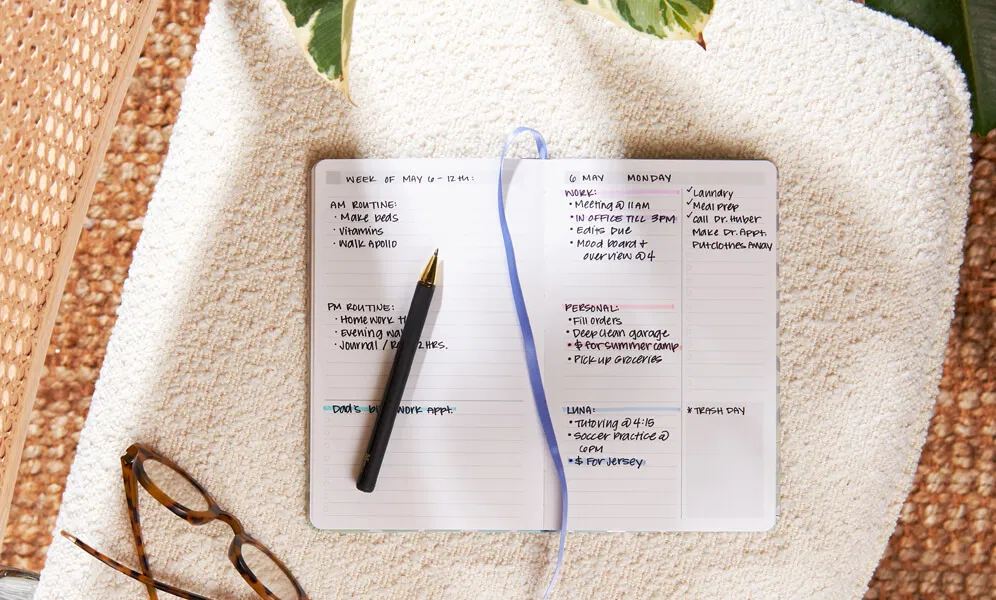 WEEK OF MAY 6-12TH:
AM ROUTINE:
· Make beds
· Vitamins
· Walk Apollo
PM ROUTINE:
· Homework
· Evening
· Journal / 2HRS.
Dad's work Appt.
6 MAY MONDAY
WORK:
• Meeting @ 11AM
• IN OFFICE TILL 3PM
• Edits Due
• Mood board +
overview @ 4
PERSONAL:
• Fill orders
• Deep clean garage
• $ for summer camp
• Pick up Groceries
LUNA:
• Tutoring @ 4:15
• Soccer Practice @
6PM
• $ For Jersey
✓ Laundry
✓ Meal Prep
✓ Call Dr. Huber
Make Dr. Appt.
Put clothes Away
* TRASH DAY